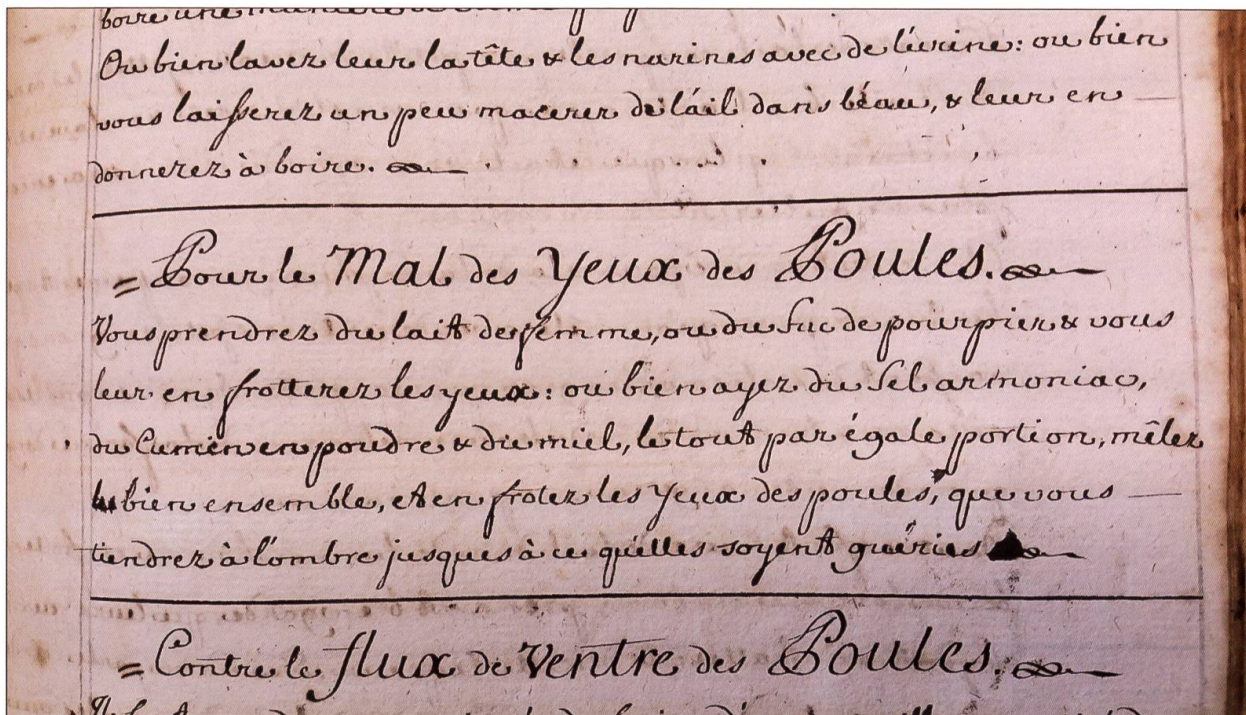 boire une maniere de
Ou bien lavez leur la tête & les narines avec de l'urine: ou bien
vous laisserez un peu macerer de l'ail dans l'eau, & leur en
donnerez à boire.
= Pour le Mal des Yeux des Poules.
Vous prendrez du lait de femme, ou du suc de pourpier & vous
leur en frotterez les yeux: ou bien ayez du Sel armoniac,
du Cumin en poudre & du miel, le tout par égale portion, mêlez
bien ensemble, et en frotez les Yeux des poules, que vous
tiendrez à l'ombre jusques à ce qu'elles soyent guéries
= Contre le flux de Ventre des Poules.